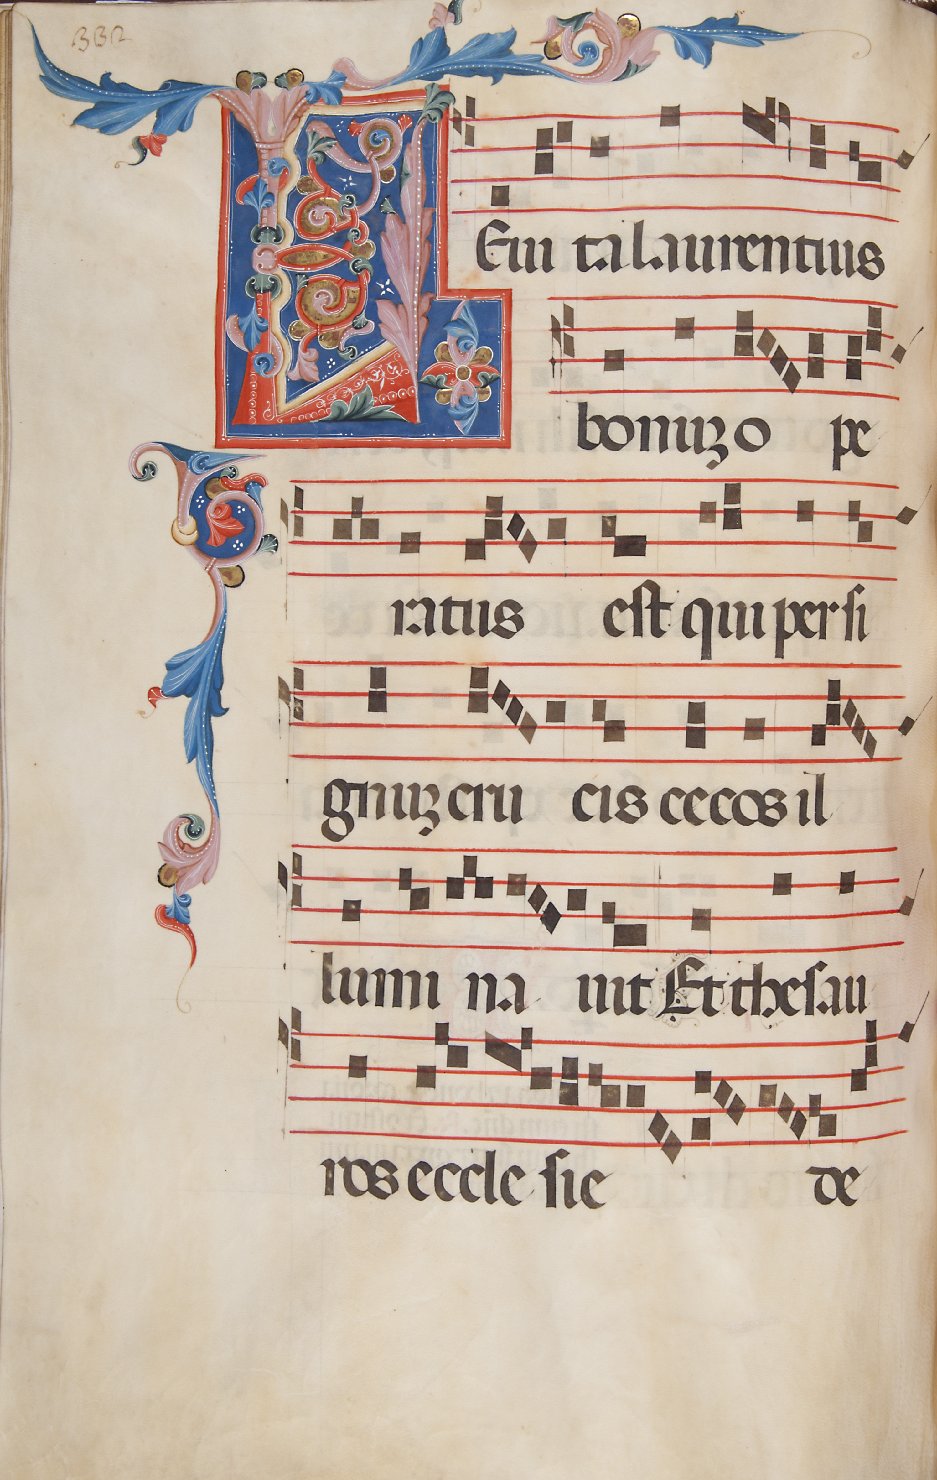 332
LEui ta laurentius
bonuʒ o pe
ratus est qui per si
gnuʒ cru cis cecos il
lumi na uit Et thesau
ros eccle sie de